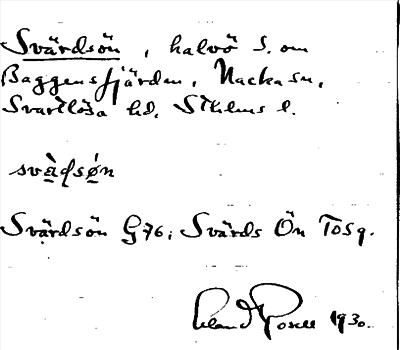 Svärdsön, halvö S. om
Baggensfjärden, Nacka sn,
Svartlösa hd, Sthlms l.
svàdsǿn
Svärdsön G76; Svärds Ön Tosq.
1930.